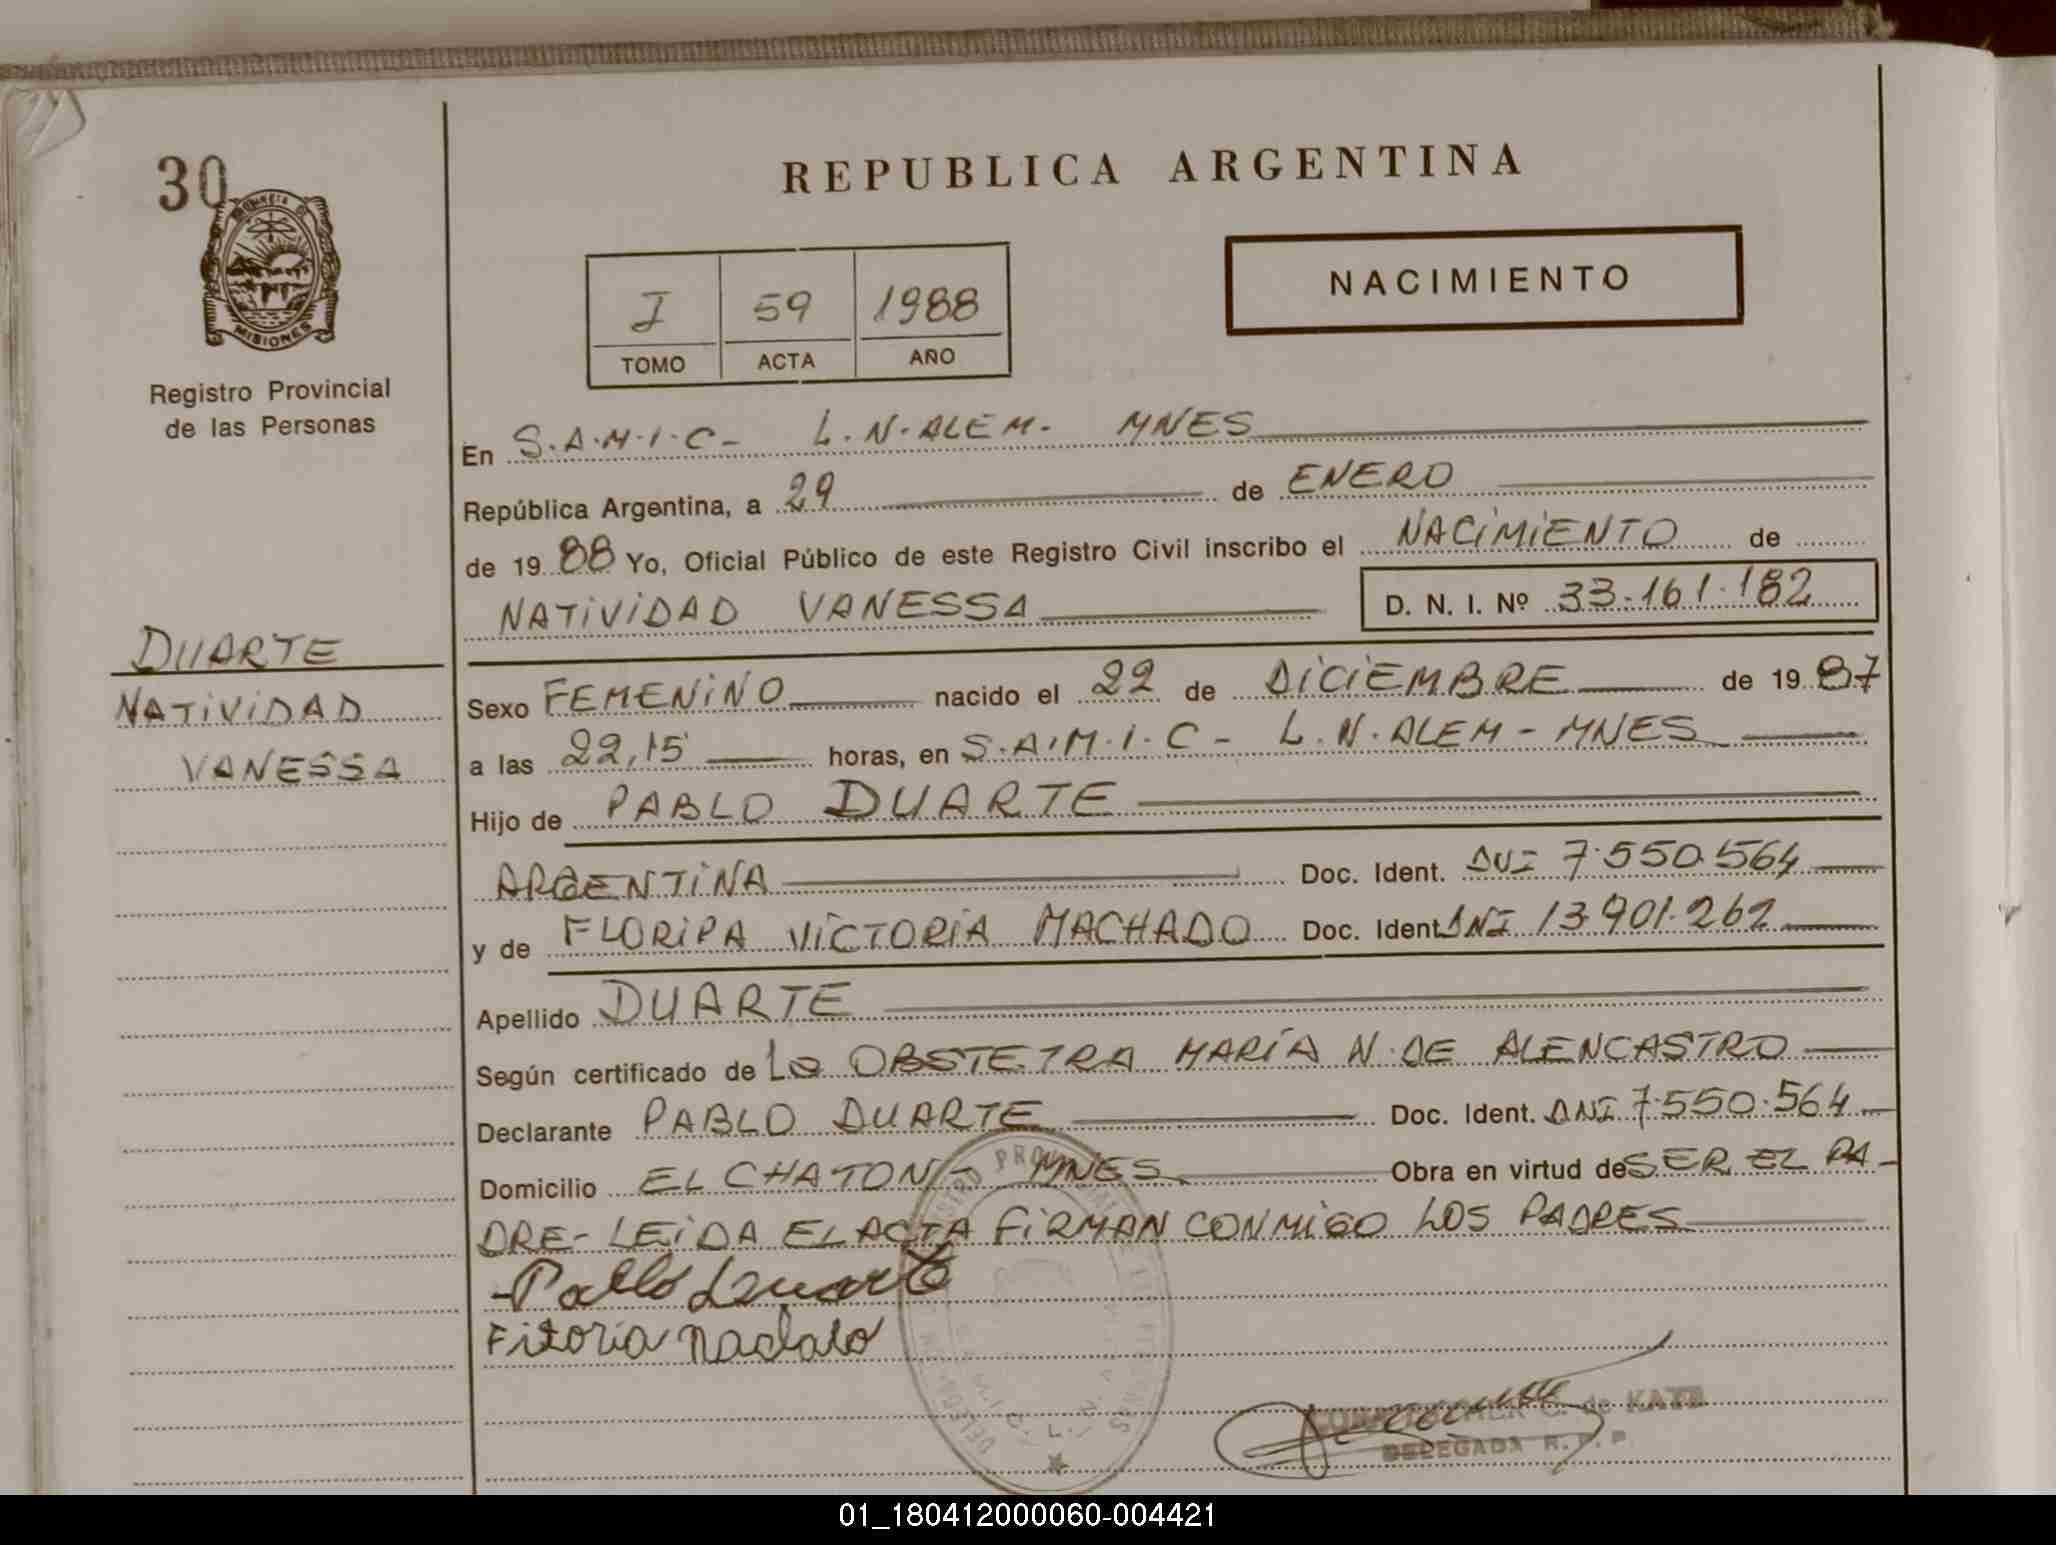 30
REPUBLICA ARGENTINA
MISIONES
Registro Provincial
de las Personas
I 59 1988
TOMO ACTA AÑO
NACIMIENTO
En S.A.M.I.C- L.N.ALEM- MNES
República Argentina, a 29 de ENERO
de 1988 Yo, Oficial Público de este Registro Civil inscribo el NACIMIENTO de
NATIVIDAD VANESSA
D. N. I. Nº 33-161.182
DUARTE
NATIVIDAD
VANESSA
Sexo FEMENINO nacido el 22 de DICIEMBRE de 1987
a las 22,15 horas, en S.A.M.I.C- L.N.ALEM-MNES
Hijo de PABLO DUARTE
ARGENTINA Doc. Ident. DNI 7.550.564
y de FLORIPA VICTORIA MACHADO Doc. Ident. DNI 13.901.262
Apellido DUARTE
Según certificado de La OBSTETRA MARÍA N. DE ALENCASTRO
Declarante PABLO DUARTE Doc. Ident. DNI 7.550.564
Domicilio EL CHATON - MNES Obra en virtud de SER EL PA-
DRE- LEIDA EL ACTA FIRMAN CONMIGO LOS PADRES
Pablo Duarte
Fitoria
de KATZ
DELEGADA R. P. P.
01_180412000060-004421